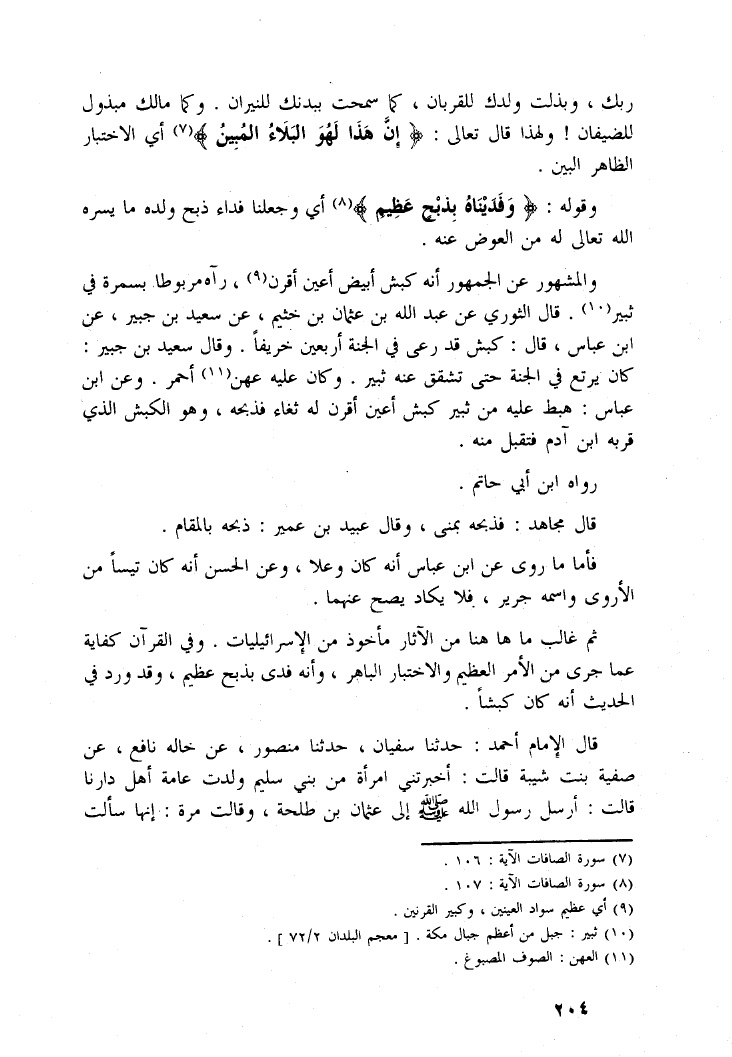 ربك ، وبذلت ولدك للقربان ، كما سمحت ببدنك للنيران . وكما مالك مبذول
للضيفان ! ولهذا قال تعالى : ﴿ إِنَّ هَذَا لَهُوَ البَلَاءُ المُبِينُ ﴾(٧) أي الاختبار
الظاهر البين .
وقوله : ﴿ وَفَدَيْنَاهُ بِذِبْحٍ عَظِيمٍ ﴾(٨) أي وجعلنا فداء ذبح ولده ما يسره
الله تعالى له من العوض عنه .
والمشهور عن الجمهور أنه كبش أبيض أعين أقرن(٩) ، رآه مربوطا بسمرة في
ثبير(١٠) . قال الثوري عن عبد الله بن عثمان بن خثيم ، عن سعيد بن جبير ، عن
ابن عباس ، قال : كبش قد رعى في الجنة أربعين خريفاً . وقال سعيد بن جبير :
كان يرتع في الجنة حتى تشقق عنه ثبير . وكان عليه عهن(١١) أحمر . وعن ابن
عباس : هبط عليه من ثبير كبش أعين أقرن له ثغاء فذبحه ، وهو الكبش الذي
قربه ابن آدم فتقبل منه .
رواه ابن أبي حاتم .
قال مجاهد : فذبحه بمنى ، وقال عبيد بن عمير : ذبحه بالمقام .
فأما ما روى عن ابن عباس أنه كان وعلا ، وعن الحسن أنه كان تيساً من
الأروى واسمه جرير ، فلا يكاد يصح عنهما .
ثم غالب ما ها هنا من الآثار مأخوذ من الإسرائيليات . وفي القرآن كفاية
عما جرى من الأمر العظيم والاختبار الباهر ، وأنه فدى بذبح عظيم ، وقد ورد في
الحديث أنه كان كبشاً .
قال الإمام أحمد : حدثنا سفيان ، حدثنا منصور ، عن خاله نافع ، عن
صفية بنت شيبة قالت : أخبرتني امرأة من بني سليم ولدت عامة أهل دارنا
قالت : أرسل رسول الله ﷺ إلى عثمان بن طلحة ، وقالت مرة : إنها سألت
(٧) سورة الصافات الآية : ١٠٦ .
(٨) سورة الصافات الآية : ١٠٧ .
(٩) أي عظيم سواد العينين ، وكبير القرنين .
(١٠) ثبير : جبل من أعظم جبال مكة . [ معجم البلدان ٧٢/٢ ] .
(١١) العهن : الصوف المصبوغ .
٢٠٤